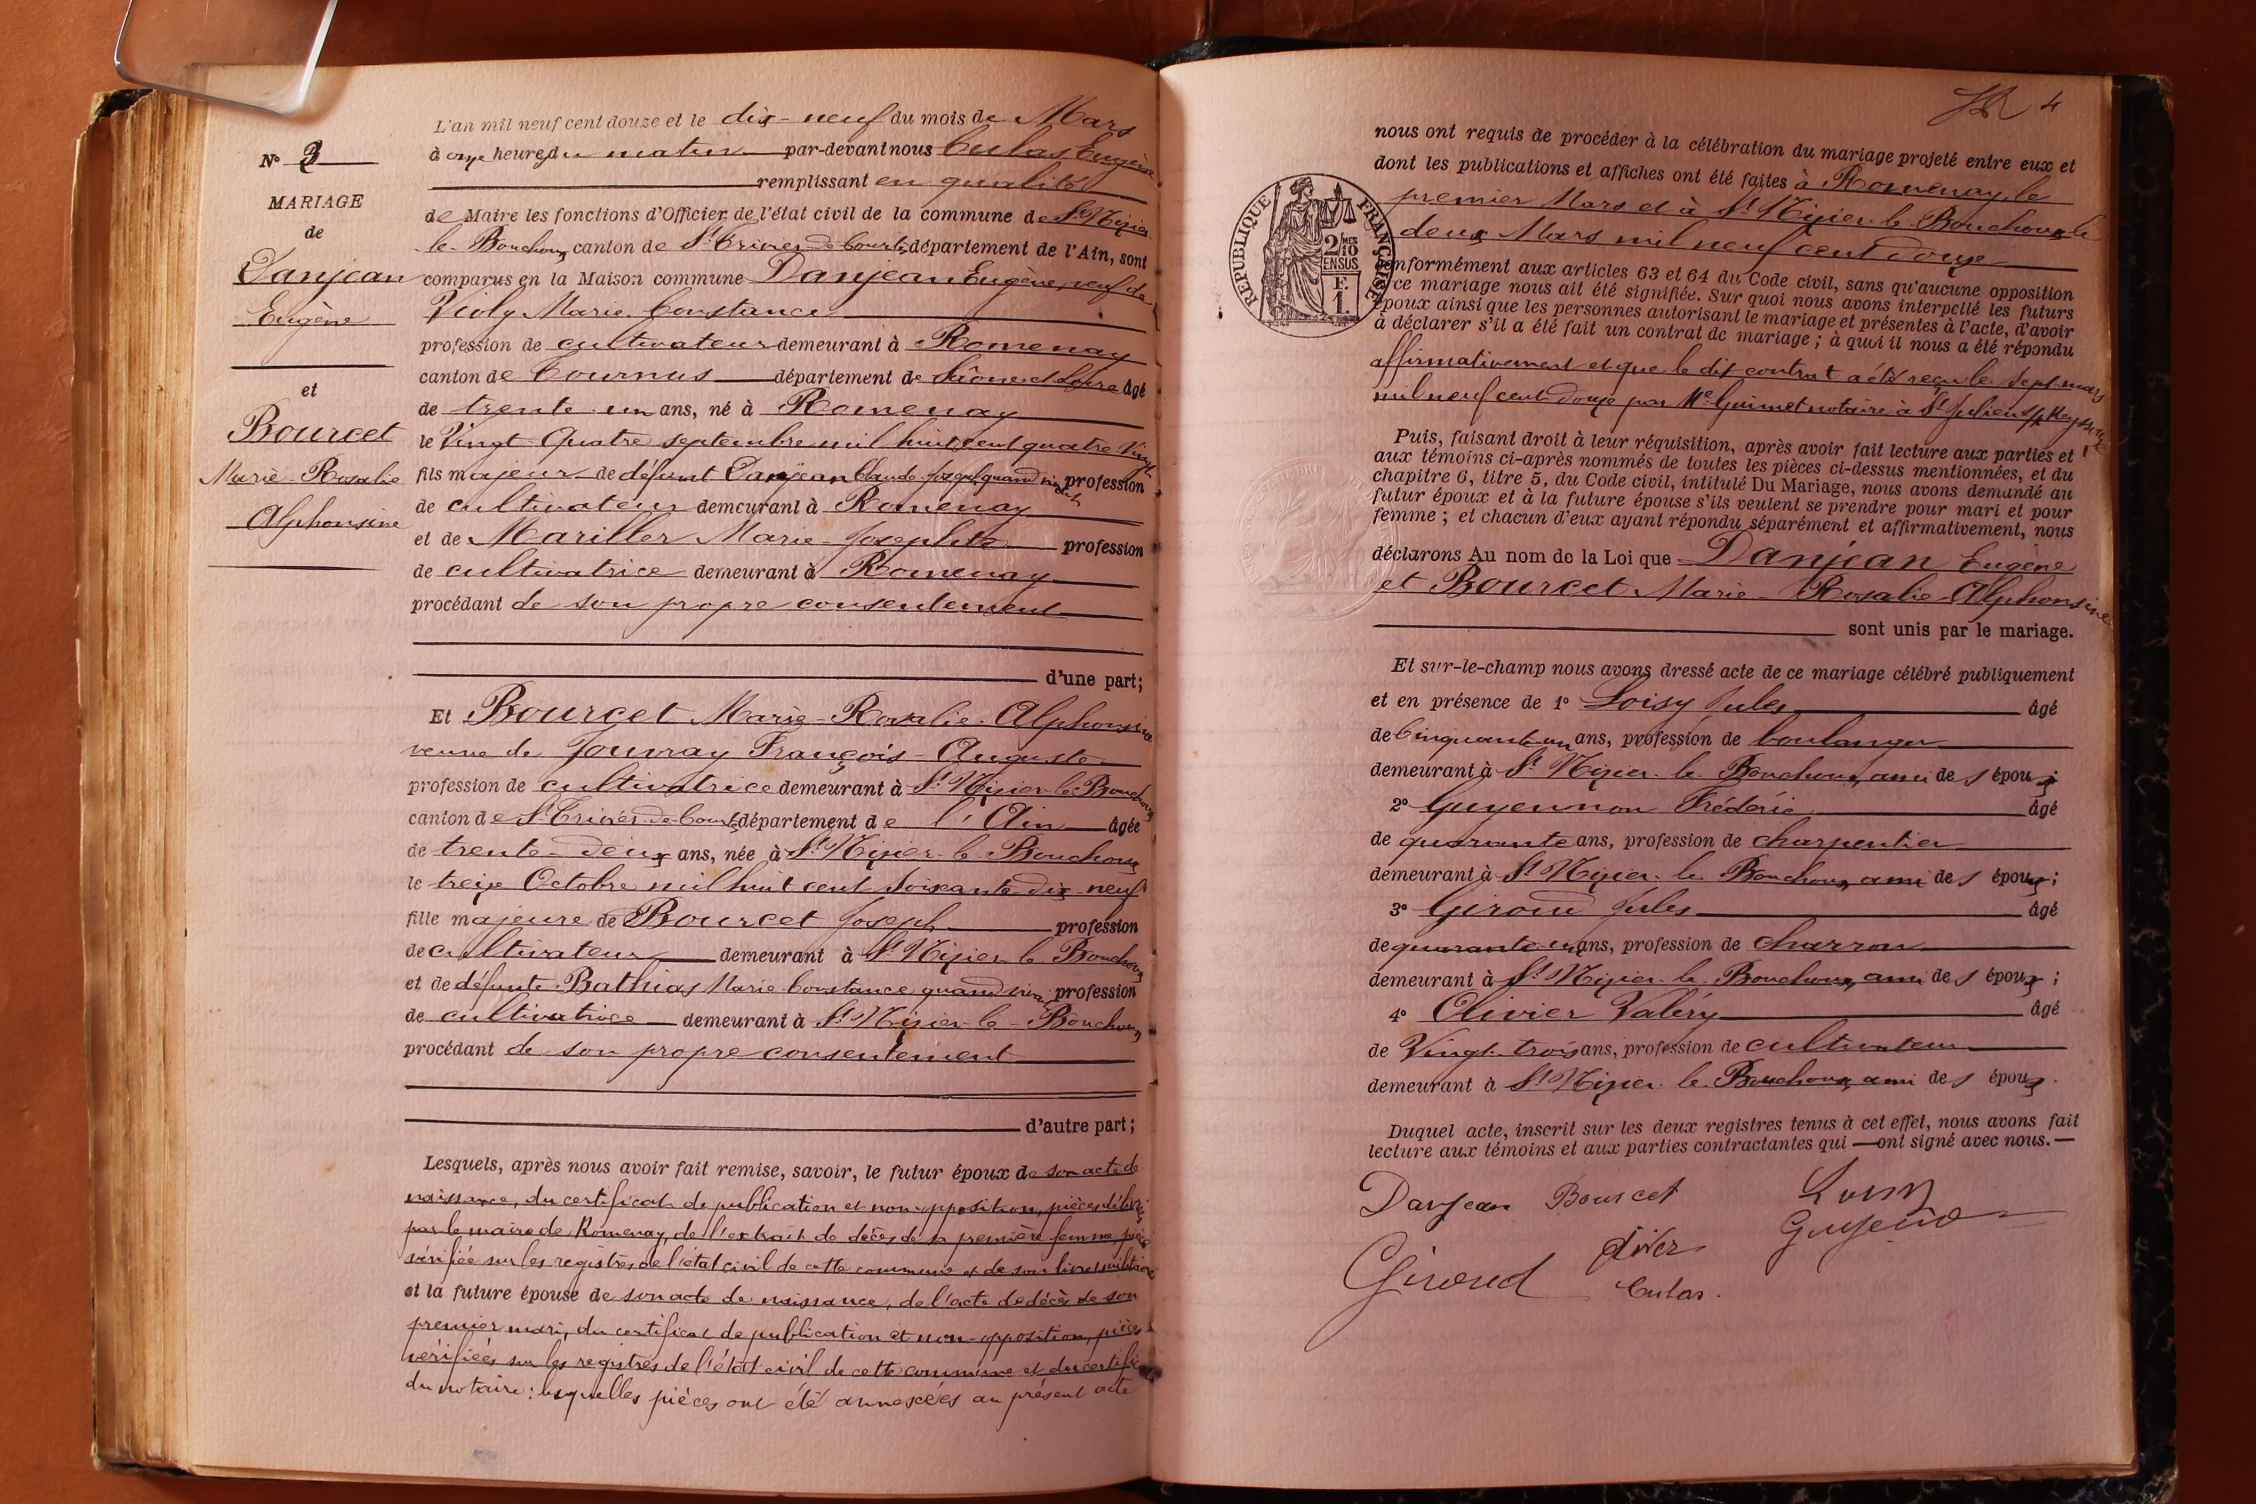 L'an mil neuf cent douze et le dix-neuf du mois de Mars
à onze heures du matin par-devant nous Culas Eugène
remplissant en qualité
de Maire les fonctions d'Officier de l'état civil de la commune de St Nizier
le Bouchoux canton de St Trivier de Courtes département de l'Ain, sont
comparus en la Maison commune Danjean Eugène, veuf de
Violy Marie Constance
profession de cultivateur demeurant à Romenay
canton de Tournus département de Saône et Loire âgé
de trente un ans, né à Romenay
le Vingt Quatre septembre mil huit cent quatre Vingt
fils majeur de défunt Danjean Claude Joseph quand vivait profession
de cultivateur demeurant à Romenay
et de Mariller Marie Josephte profession
de cultivatrice demeurant à Romenay
procédant de son propre consentement
d'une part;
Et Bourcet Marie-Rosalie-Alphonsine
veuve de Jouvray François-Auguste
profession de cultivatrice demeurant à St Nizier le Bouchoux
canton de St Trivier de Courtes département de l'Ain âgée
de trente-deux ans, née à St Nizier le Bouchoux
le treize Octobre mil huit cent soixante dix-neuf
fille majeure de Bourcet Joseph profession
de cultivateur demeurant à St Nizier le Bouchoux
et de défunte Bathias Marie Constance quand vivait profession
de cultivatrice demeurant à St Nizier le Bouchoux
procédant de son propre consentement
d'autre part;
Lesquels, après nous avoir fait remise, savoir, le futur époux de son acte de
naissance, du certificat de publication et non-opposition, pièces délivrées
par le maire de Romenay, de l'extrait de décès de sa première femme, pièce
vérifiée sur les registres de l'état civil de cette commune et de son livret militaire
et la future épouse de son acte de naissance, de l'acte de décès de son
premier mari, du certificat de publication et non-opposition, pièces
vérifiées sur les registres de l'état civil de cette commune et du certificat
du notaire : lesquelles pièces ont été annexées au présent acte
N° 3
MARIAGE
de
Danjean
Eugène
et
Bourcet
Marie-Rosalie
Alphonsine
4
nous ont requis de procéder à la célébration du mariage projeté entre eux et
dont les publications et affiches ont été faites à Romenay, le
premier Mars et à St Nizier le Bouchoux le
deux Mars mil neuf cent douze
conformément aux articles 63 et 64 du Code civil, sans qu'aucune opposition
à ce mariage nous ait été signifiée. Sur quoi nous avons interpellé les futurs
époux ainsi que les personnes autorisant le mariage et présentes à l'acte, d'avoir
à déclarer s'il a été fait un contrat de mariage ; à quoi il nous a été répondu
affirmativement et que le dit contrat a été reçu le sept mars
mil neuf cent douze par Me Guimet notaire à St Julien s/ Reyssouze
Puis, faisant droit à leur réquisition, après avoir fait lecture aux parties et
aux témoins ci-après nommés de toutes les pièces ci-dessus mentionnées, et du
chapitre 6, titre 5, du Code civil, intitulé Du Mariage, nous avons demandé au
futur époux et à la future épouse s'ils veulent se prendre pour mari et pour
femme ; et chacun d'eux ayant répondu séparément et affirmativement, nous
déclarons Au nom de la Loi que Danjean Eugène
et Bourcet Marie-Rosalie-Alphonsine
sont unis par le mariage.
Et sur-le-champ nous avons dressé acte de ce mariage célébré publiquement
et en présence de 1° Loisy Jules âgé
de Cinquante un ans, profession de boulanger
demeurant à St Nizier le Bouchoux, ami des époux;
2° Guyennon Frédéric âgé
de quarante ans, profession de charpentier
demeurant à St Nizier le Bouchoux, ami des époux;
3° Giroud Jules âgé
de quarante un ans, profession de charron
demeurant à St Nizier le Bouchoux, ami des époux;
4° Olivier Valéry âgé
de Vingt-trois ans, profession de cultivateur
demeurant à St Nizier le Bouchoux, ami des époux.
Duquel acte, inscrit sur les deux registres tenus à cet effet, nous avons fait
lecture aux témoins et aux parties contractantes qui — ont signé avec nous. —
Danjean Bourcet Loisy
Giroud Culas
RÉPUBLIQUE FRANÇAISE
2/10
EN SUS
F.
1.